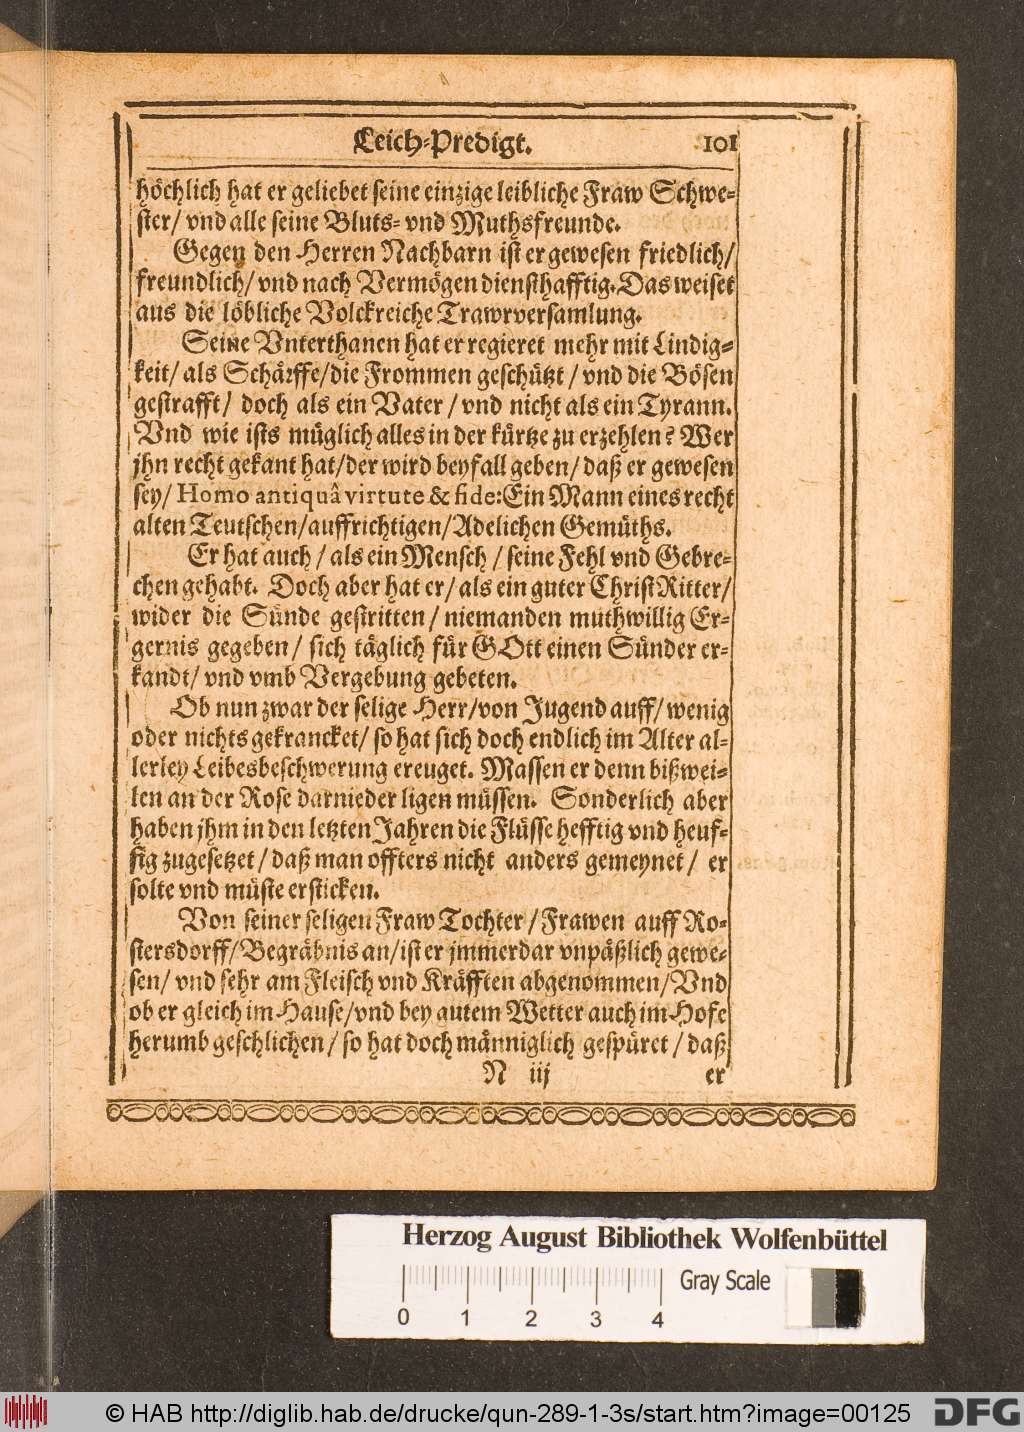 Leich-Predigt. 101
höchlich hat er geliebet seine einzige leibliche Fraw Schwe-
ster/ vnd alle seine Bluts- vnd Muthsfreunde.
Gegen den Herren Nachbarn ist er gewesen friedlich/
freundlich/ vnd nach Vermögen diensthafftig. Das weiset
aus die löbliche Volckreiche Trawrversamlung.
Seine Vnterthanen hat er regieret mehr mit Lindig-
keit/ als Schärffe/ die Frommen geschützt / vnd die Bösen
gestrafft/ doch als ein Vater / vnd nicht als ein Tyrann.
Vnd wie ists müglich alles in der kürtze zu erzehlen? Wer
jhn recht gekant hat/ der wird beyfall geben/ daß er gewesen
sey/ Homo antiquâ virtute & fide: Ein Mann eines recht
alten Teutschen/ auffrichtigen/ Adelichen Gemüths.
Er hat auch / als ein Mensch / seine Fehl vnd Gebre-
chen gehabt. Doch aber hat er/ als ein guter Christ Ritter/
wider die Sünde gestritten / niemanden muthwillig Er-
gernis gegeben/ sich täglich für GOtt einen Sünder er-
kandt/ vnd vmb Vergebung gebeten.
Ob nun zwar der selige Herr/ von Jugend auff/ wenig
oder nichts gekrancket/ so hat sich doch endlich im Alter al-
lerley Leibesbeschwerung ereuget. Massen er denn bißwei-
len an der Rose darnieder ligen müssen. Sonderlich aber
haben jhm in den letzten Jahren die Flüsse hefftig vnd heuf-
fig zugesetzet / daß man offters nicht anders gemeynet / er
solte vnd müste ersticken.
Von seiner seligen Fraw Tochter / Frawen auff Ro-
stersdorff/ Begräbnis an/ ist er jmmerdar vnpäßlich gewe-
sen/ vnd sehr am Fleisch vnd Kräfften abgenommen/ Vnd
ob er gleich im Hause/ vnd bey gutem Wetter auch im Hofe
herumb geschlichen / so hat doch männiglich gespüret / daß
N iij er
Herzog August Bibliothek Wolfenbüttel
0 1 2 3 4 Gray Scale
© HAB http://diglib.hab.de/drucke/qun-289-1-3s/start.htm?image=00125 DFG